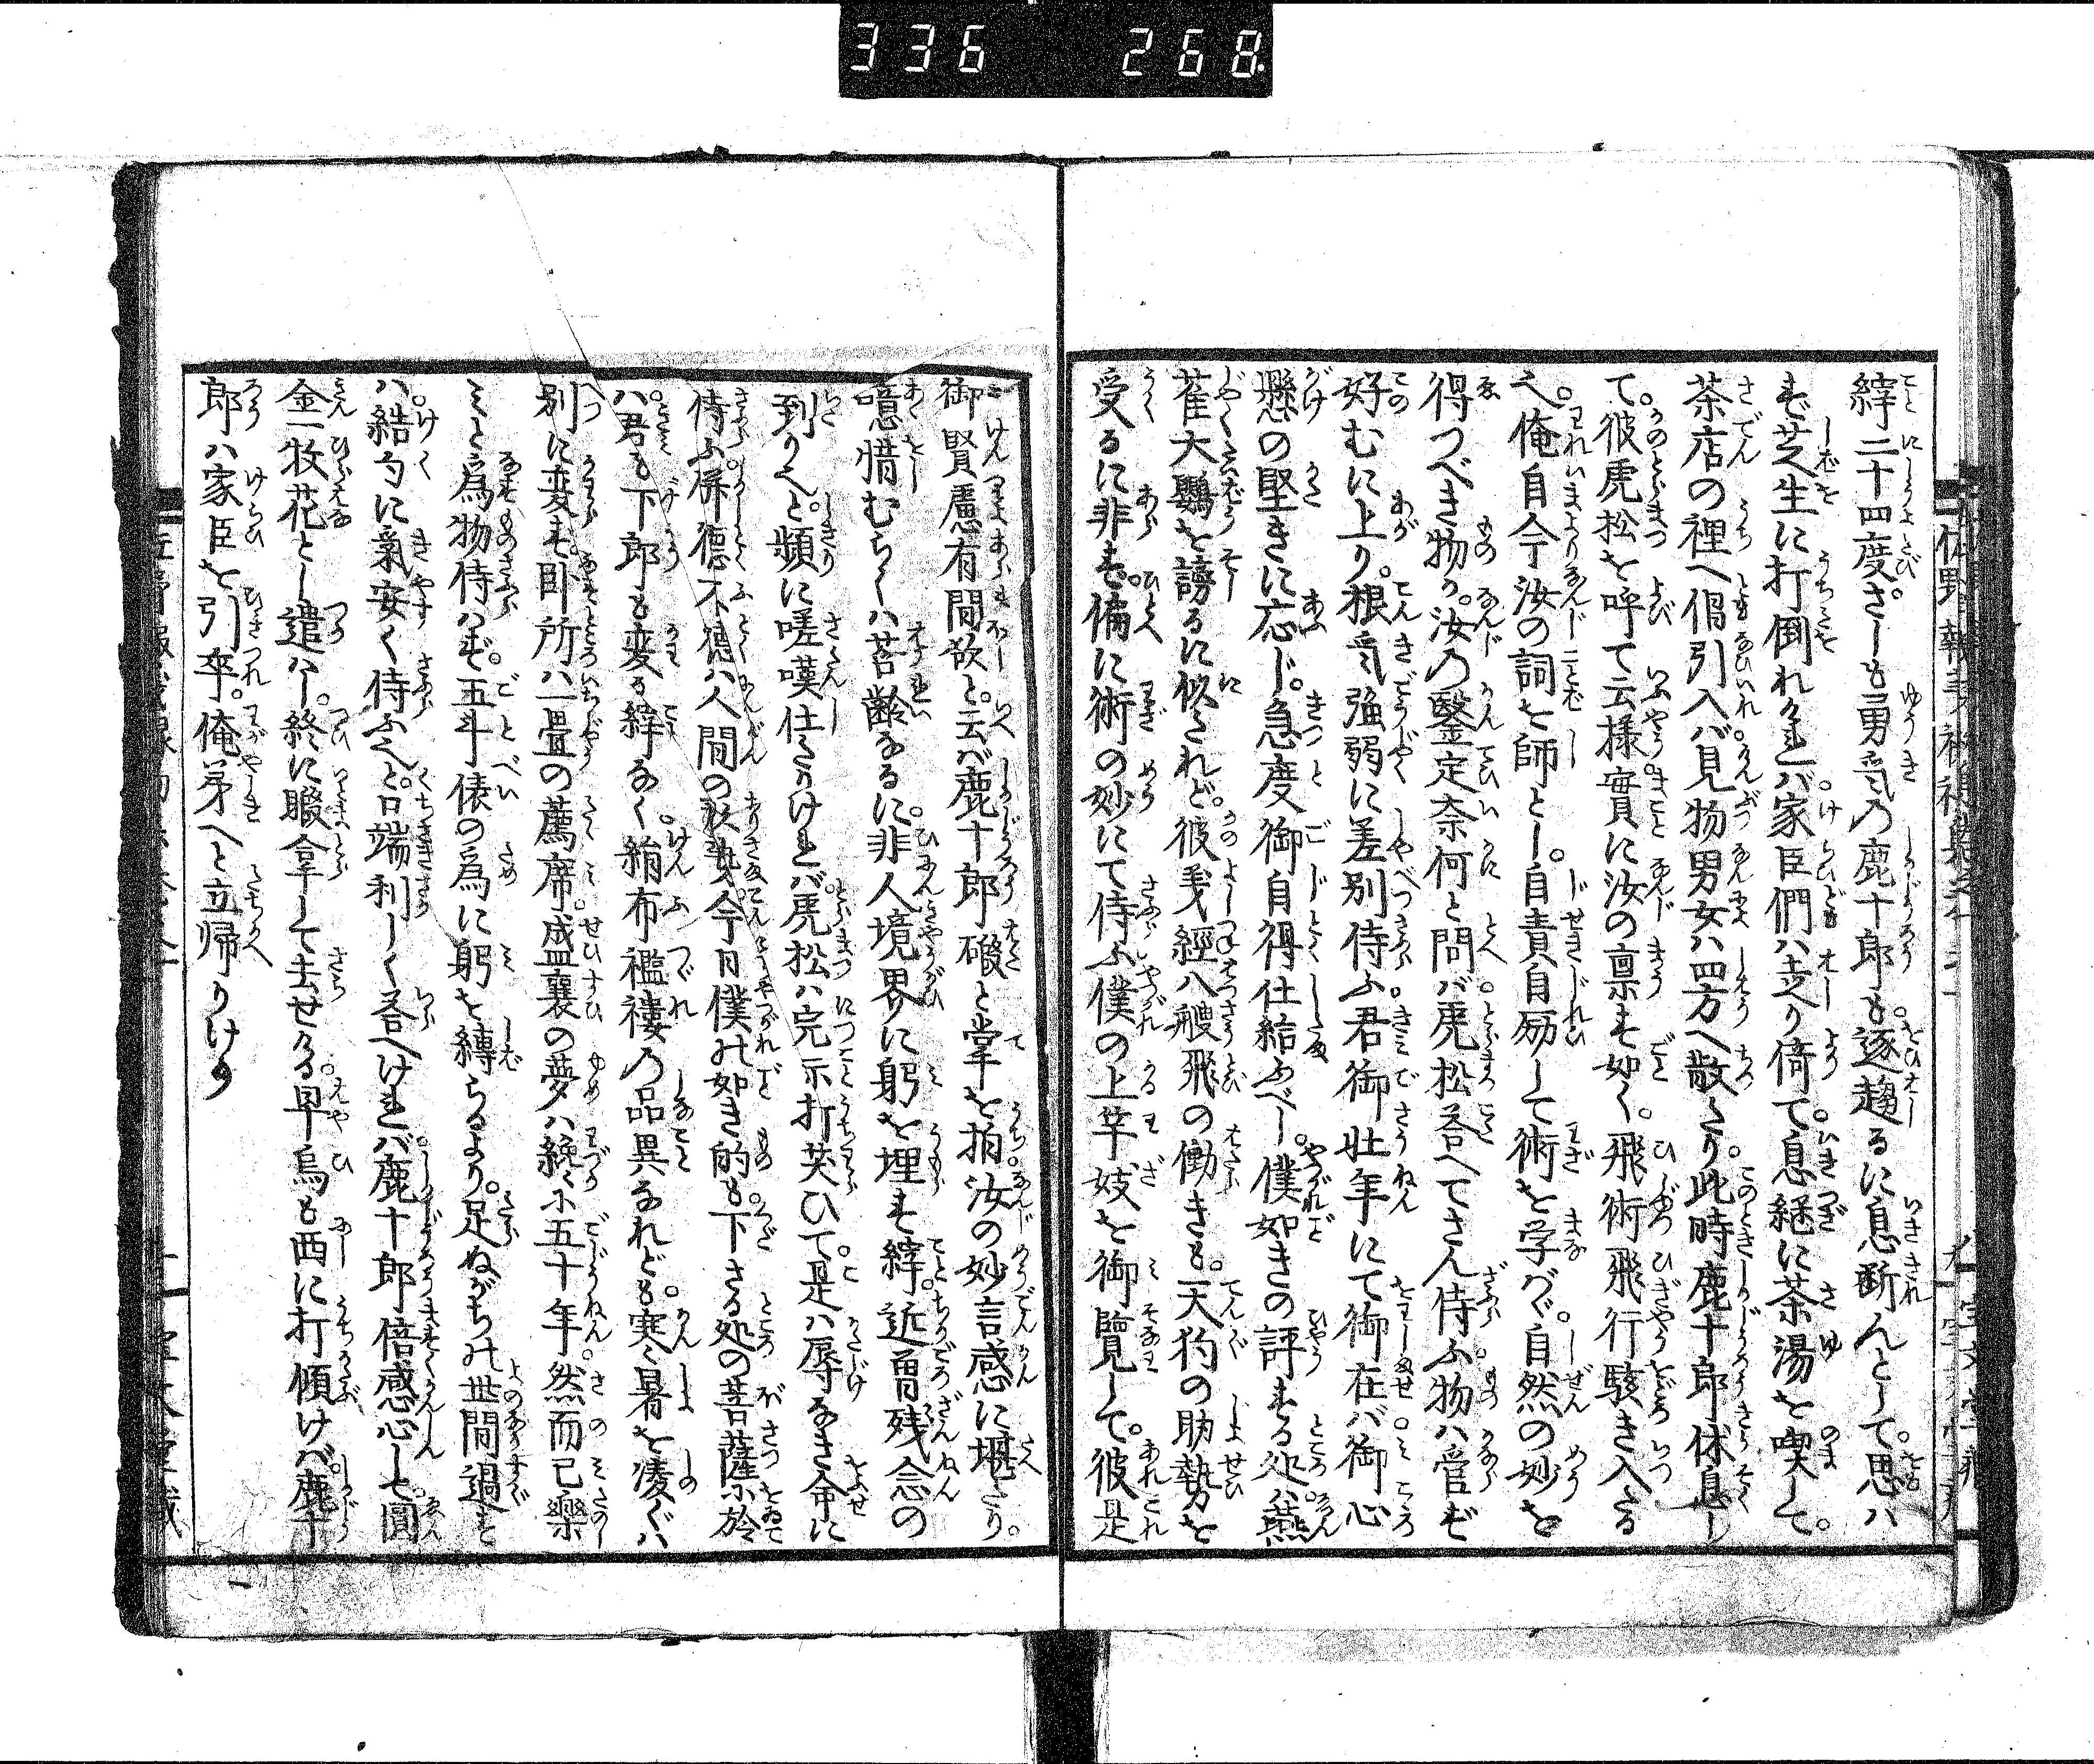 336 268
縡二十四度さしも勇気の鹿十郎も逐趨るに息断んとして。思ハ
ず芝生に打倒れけれバ。家臣們ハ走り倚て。息継に茶湯を喫して。
茶店の裡へ倡引入バ見物男女ハ四方へ散たり。此時鹿十郎休息し
て。彼虎松を呼て云様。実に汝の禀す如く。飛術飛行駭き入たる
べ。俺自今汝の詞を師とし。自責自励して術を学バゞ。自然の妙を
得つべき物か。汝の鑒定奈何と問バ。虎松答へてさん侍ふ。物ハ管ず
好むに上り。根気強弱に差別侍ふ。君御壮年にて御在バ。御心
懸の堅きに応じ。急度御自得仕給ふべし。僕如きの評する処ハ。燕
雀大鸚を謗るに似たれど。彼義経八艘飛の働きも。天狗の助勢を
受るに非ず。偏に術の妙にて侍ふ。僕の上竿妓を御覧して。彼是
御賢慮有間欲と。云バ鹿十郎礑と掌を拍。汝の妙言感に堪たり。
噫惜むらくハ苔齢なるに。非人境界に躬を埋す縡。近曽残念の
到りべと。頻に嗟嘆仕たりけれバ。虎松ハ完尓打笑ひて。是ハ辱なき命に
侍ふ。併徳不徳ハ人間の。今日僕の如き的も。下さる処の菩薩に於
ハ。君も下郎も変る縡なく。絹布襤褸の品異なれども。寒暑を凌ぐハ
別に変ず。臥所ハ一畳の薦席。盛衰の夢ハ纔に五十年。然而已楽
ミと為物侍ハず。五斗俵の為に躬を縛らるより。足ぬがちの世間過を
ハ。結句に気安く侍ふべと。口端利しく答へけれバ。鹿十郎倍感心し。円
金一枚花とし遣ハし。終に暇拿して去せける。早烏も西に打傾けバ。鹿十
郎ハ家臣を引卒。俺弟へと立帰りけり